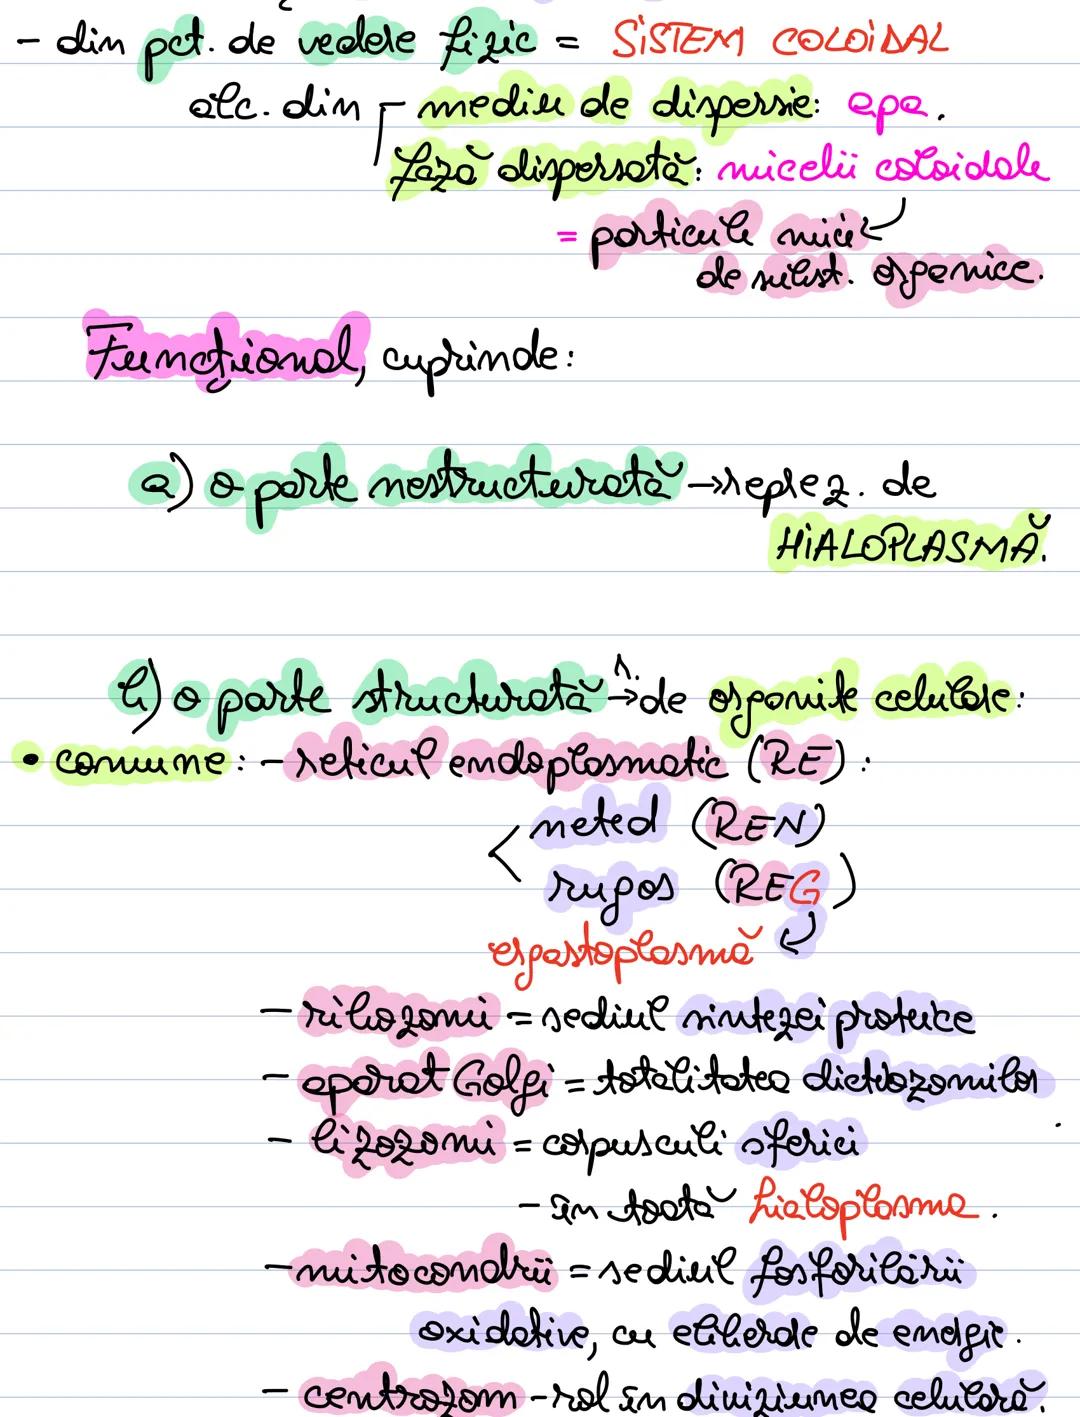 - din pct. de vedere fizic = SISTEM COLOIDAL
alc. din mediu de dispersie: apa.
fază dispersată: micelii coloidale
= particule mici
de subst. organice.
Funcțional, cuprinde:
a) o parte nestructurată → reprez. de
HIALOPLASMĂ.
b) o parte structurată → r. de organite celulare:
• comune: - reticul endoplasmatic (RE):
neted (REN)
rugos (REG)
ergastoplasmă
- ribozomii = sediul sintezei proteice
- aparat Golgi = totalitatea dictiozomilor
- lizozomi = corpusculi sferici
- în toată hialoplasma.
- mitocondrii = sediul fosforilării
oxidative, cu eliberare de energie.
- centrozom - rol în diviziunea celulară.